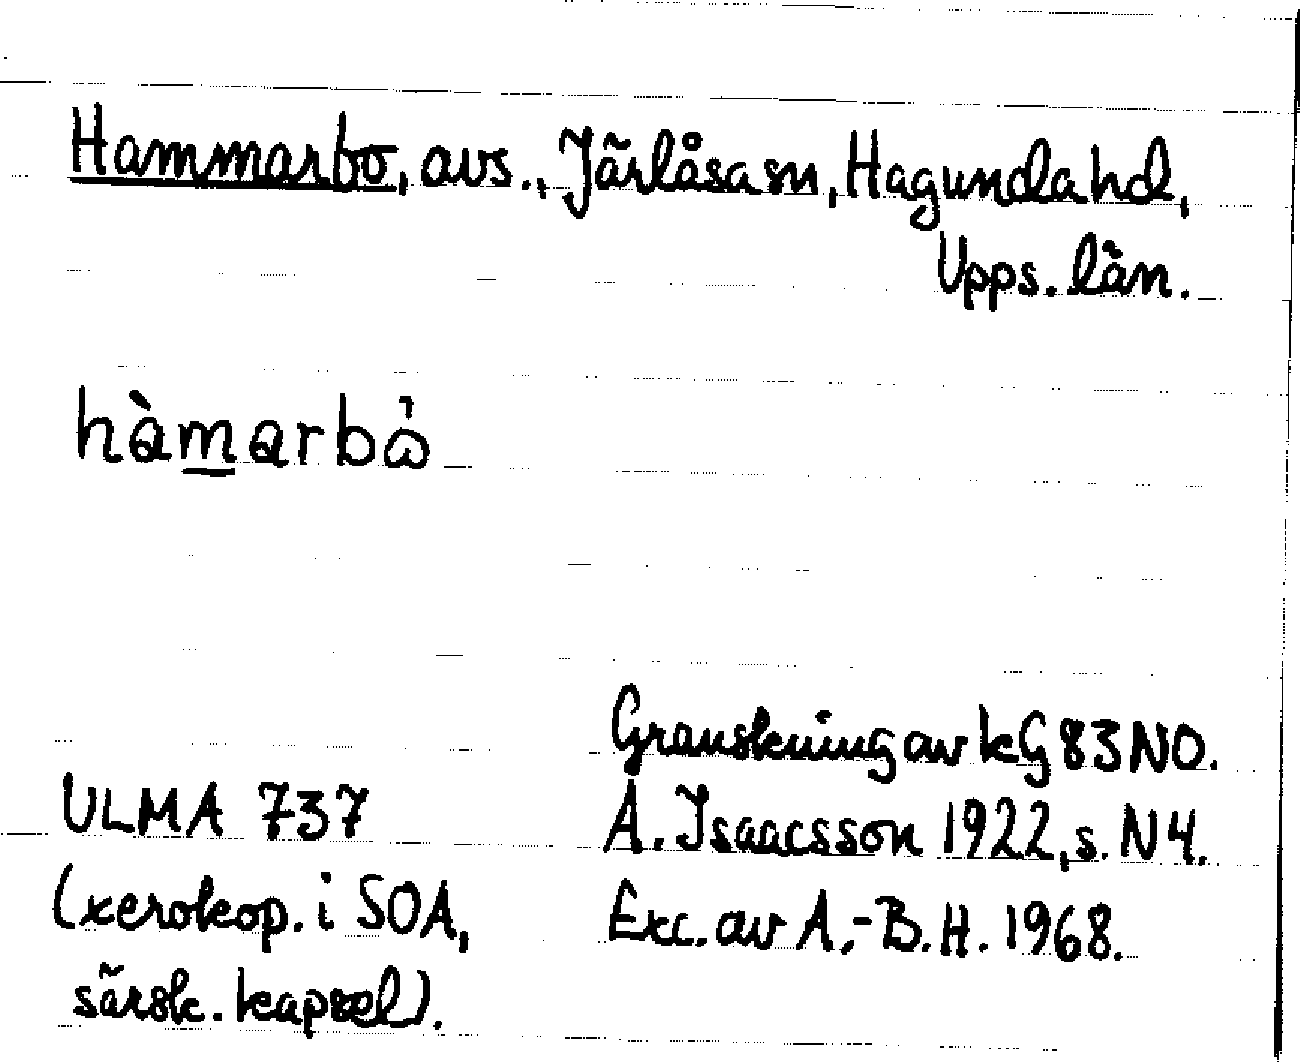 Hammarbo, avs., Järlåsa sn, Hagunda hd,
Upps. län.
hàmarbå̀
Granskning av kG 83 NO.
ULMA 737
A. Isaacsson 1922, s. N 4.
(xerokop. i SOA,
Exc. av A.-B. H. 1968.
särsk. kapsel).